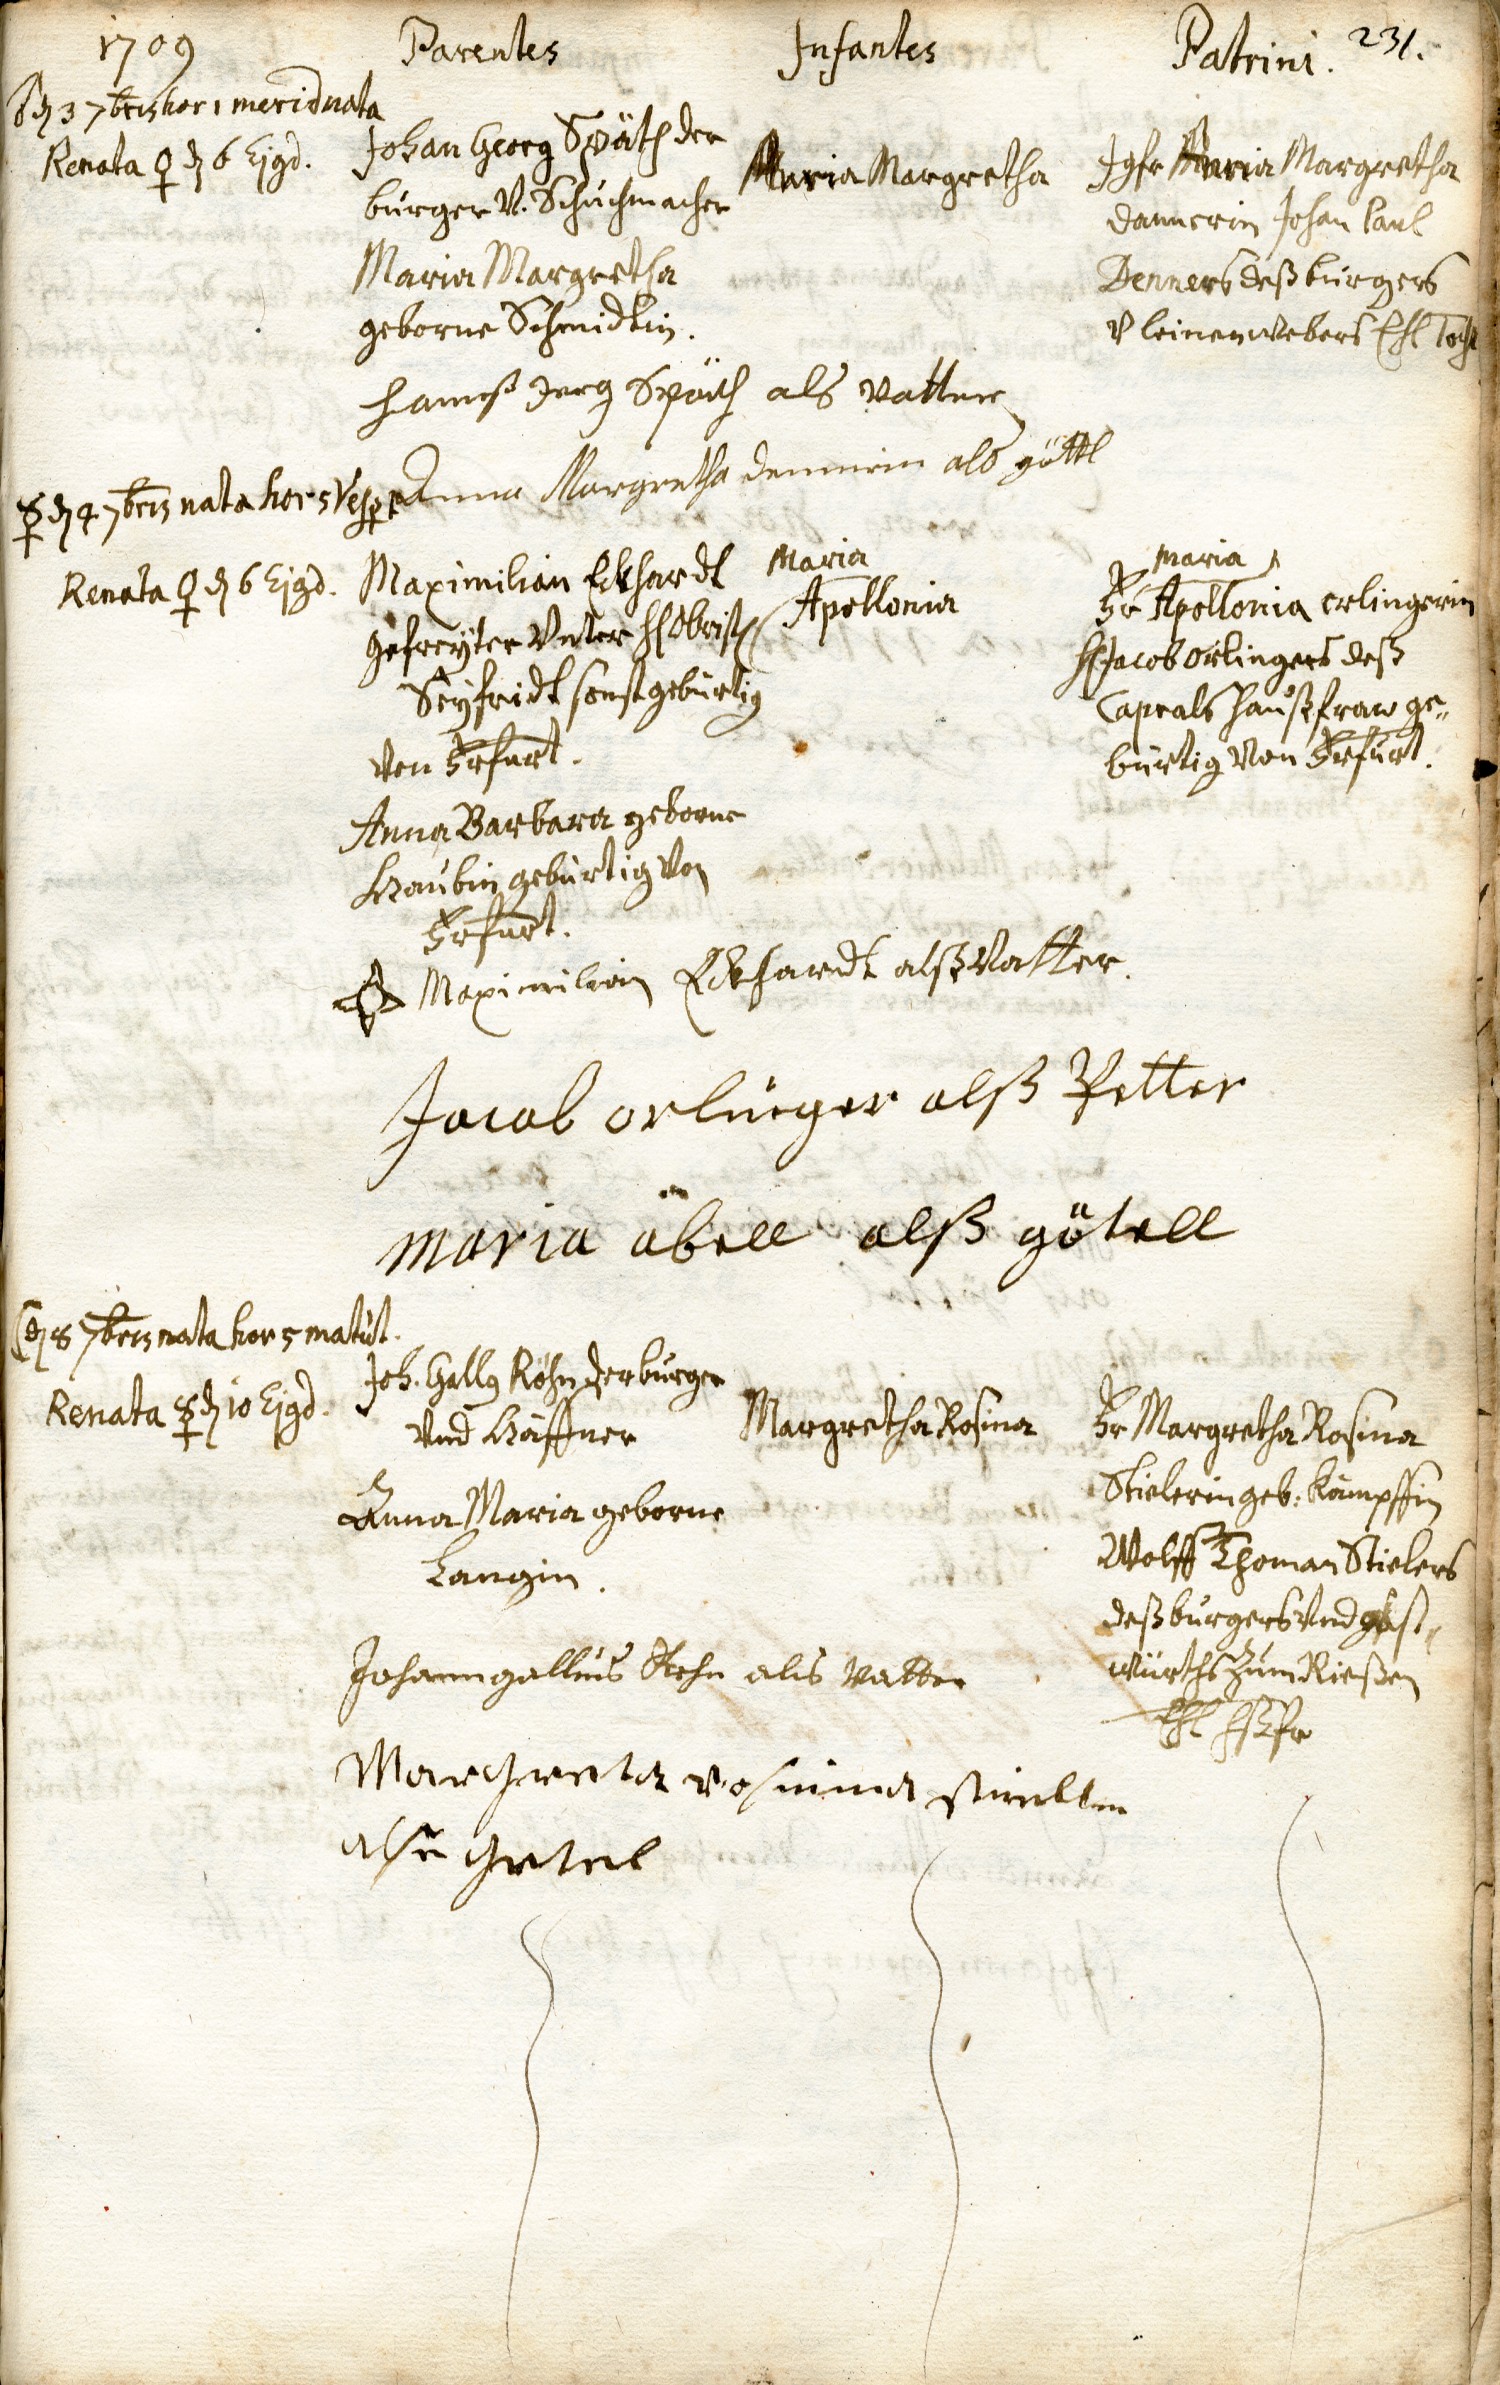 1709
Parentes
Infantes
Patrini.
231.
♂ dẽ 3 7bris hor 1 merid nata
Renata ♀ dẽ 6 Ejgd.
Johan Georg Späth der
burger V. Schuchmacher
Maria Margretha
geborne Schmidtin.
Maria Margretha
Jgfr Maria Margretha
Dannerin Johan Paul
Denners deß burgers
V leinenwebers Ehl Tocht
hannß Jerg Späth als vatter
Anna Margretha dennerin als göttl
☿ dẽ 4 7bris nata hor 5 Vesper
Renata ♀ dẽ 6 Ejgd.
Maximilian Eckhardt
gefreyter Vnter H Obrist
Seyfridt sonst gebürtig
von Erfurt.
Anna Barbara geborne
Haubin gebürtig Von
Erfurt.
Maria
Apollonia
Maria
Fr Apollonia orlingerin
H Jacob Orlingers deß
Caprals haußfraw ge„
bürtig Von Erfurt.
Maximilian Eckhardt alß Vatter.
Jacob orlinger alß Petter
maria äbell alß götell
☾ dẽ 8 7bris nata hor 5 matut.
Renata ☿ dẽ 10 Ejgd.
Joh. Gallg Röhn der burger
Vnd Häffner
Anna Maria geborne
Langin.
Margretha Rosina
Fr Margretha Rosina
Stielerin geb: Kämpffin
Wolff Thoman Stielers
deß burgers Vnd gast„
würths zum Rießen
Ehl hßfr
Johann gallus Rehn als Vatter
Margreta rosina stirellin
alß getel